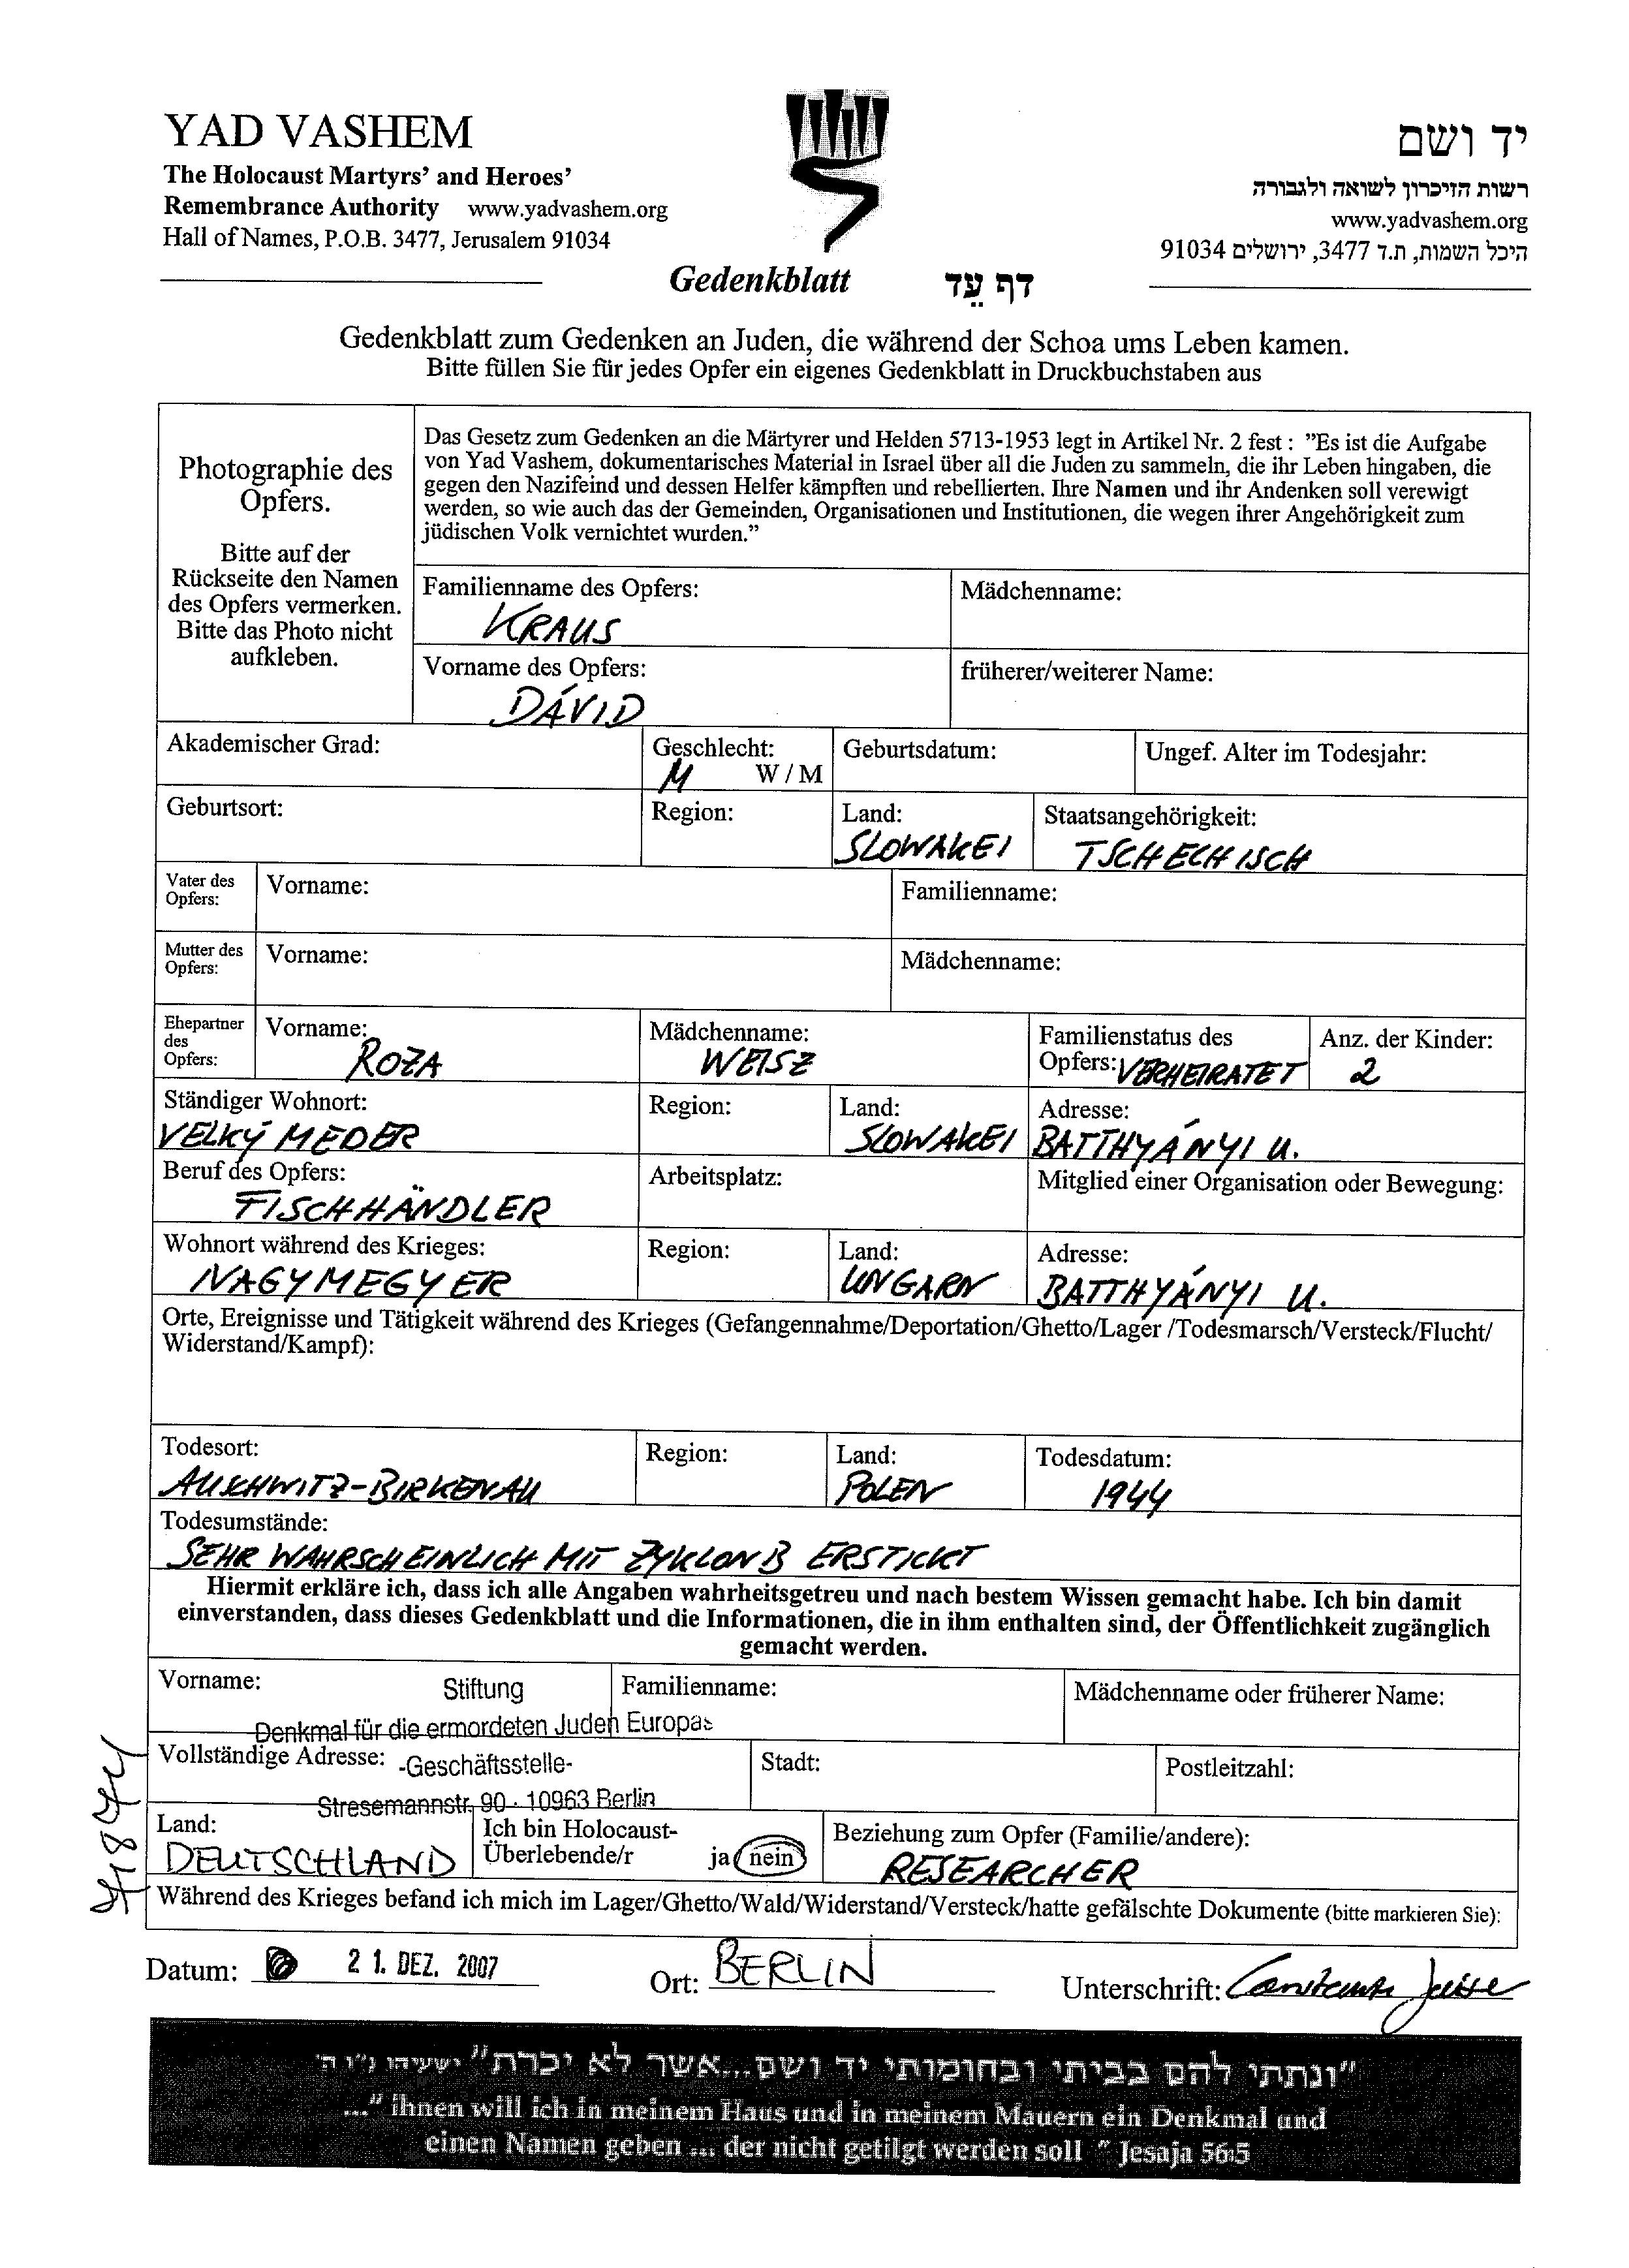 YAD VASHEM
The Holocaust Martyrs' and Heroes'
Remembrance Authority www.yadvashem.org
Hall of Names, P.O.B. 3477, Jerusalem 91034
יד ושם
רשות הזיכרון לשואה ולגבורה
www.yadvashem.org
היכל השמות, ת.ד 3477, ירושלים 91034
Gedenkblatt דף עֵד
Gedenkblatt zum Gedenken an Juden, die während der Schoa ums Leben kamen.
Bitte füllen Sie für jedes Opfer ein eigenes Gedenkblatt in Druckbuchstaben aus
Photographie des
Opfers.
Bitte auf der
Rückseite den Namen
des Opfers vermerken.
Bitte das Photo nicht
aufkleben.
Das Gesetz zum Gedenken an die Märtyrer und Helden 5713-1953 legt in Artikel Nr. 2 fest : "Es ist die Aufgabe
von Yad Vashem, dokumentarisches Material in Israel über all die Juden zu sammeln, die ihr Leben hingaben, die
gegen den Nazifeind und dessen Helfer kämpften und rebellierten. Ihre Namen und ihr Andenken soll verewigt
werden, so wie auch das der Gemeinden, Organisationen und Institutionen, die wegen ihrer Angehörigkeit zum
jüdischen Volk vernichtet wurden."
Familienname des Opfers: Mädchenname:
KRAUS
Vorname des Opfers: früherer/weiterer Name:
DÁVID
Akademischer Grad: Geschlecht: Geburtsdatum: Ungef. Alter im Todesjahr:
M W / M
Geburtsort: Region: Land: Staatsangehörigkeit:
SLOWAKEI TSCHECHISCH
Vater des
Opfers: Vorname: Familienname:
Mutter des
Opfers: Vorname: Mädchenname:
Ehepartner
des
Opfers: Vorname: Mädchenname: Familienstatus des
Opfers: Anz. der Kinder:
ROZA WEISZ VERHEIRATET 2
Ständiger Wohnort: Region: Land: Adresse:
VELKÝ MEDER SLOWAKEI BATTHYÁNYI U.
Beruf des Opfers: Arbeitsplatz: Mitglied einer Organisation oder Bewegung:
FISCHHÄNDLER
Wohnort während des Krieges: Region: Land: Adresse:
NAGYMEGYER UNGARN BATTHYÁNYI U.
Orte, Ereignisse und Tätigkeit während des Krieges (Gefangennahme/Deportation/Ghetto/Lager /Todesmarsch/Versteck/Flucht/
Widerstand/Kampf):
Todesort: Region: Land: Todesdatum:
AUSCHWITZ-BIRKENAU POLEN 1944
Todesumstände:
SEHR WAHRSCHEINLICH MIT ZYKLON B ERSTICKT
Hiermit erkläre ich, dass ich alle Angaben wahrheitsgetreu und nach bestem Wissen gemacht habe. Ich bin damit
einverstanden, dass dieses Gedenkblatt und die Informationen, die in ihm enthalten sind, der Öffentlichkeit zugänglich
gemacht werden.
Vorname: Stiftung Familienname: Mädchenname oder früherer Name:
Denkmal für die ermordeten Juden Europas
Vollständige Adresse: -Geschäftsstelle- Stadt: Postleitzahl:
Stresemannstr. 90 · 10963 Berlin
Land: Ich bin Holocaust-
Überlebende/r ja nein Beziehung zum Opfer (Familie/andere):
DEUTSCHLAND RESEARCHER
Während des Krieges befand ich mich im Lager/Ghetto/Wald/Widerstand/Versteck/hatte gefälschte Dokumente (bitte markieren Sie):
Datum: 21. DEZ. 2007 Ort: BERLIN Unterschrift:
"ונתתי להם בביתי ובחומותי יד ושם...אשר לא יכרת" ישעיהו נ"ו ה'
..." ihnen will ich in meinem Haus und in meinem Mauern ein Denkmal und
einen Namen geben ... der nicht getilgt werden soll " Jesaja 56:5